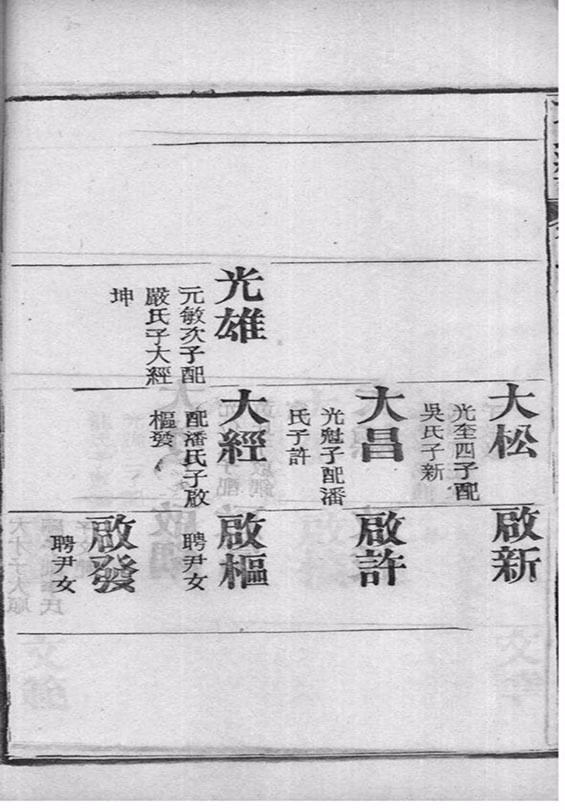 大松
光至四子配
吳氏子新
啟新
大昌
光魁子配潘
氏子許
啟許
光雄
元敏次子配
嚴氏子大經
坤
大經
配潘氏子啟
樞發
啟樞
聘尹女
啟發
聘尹女